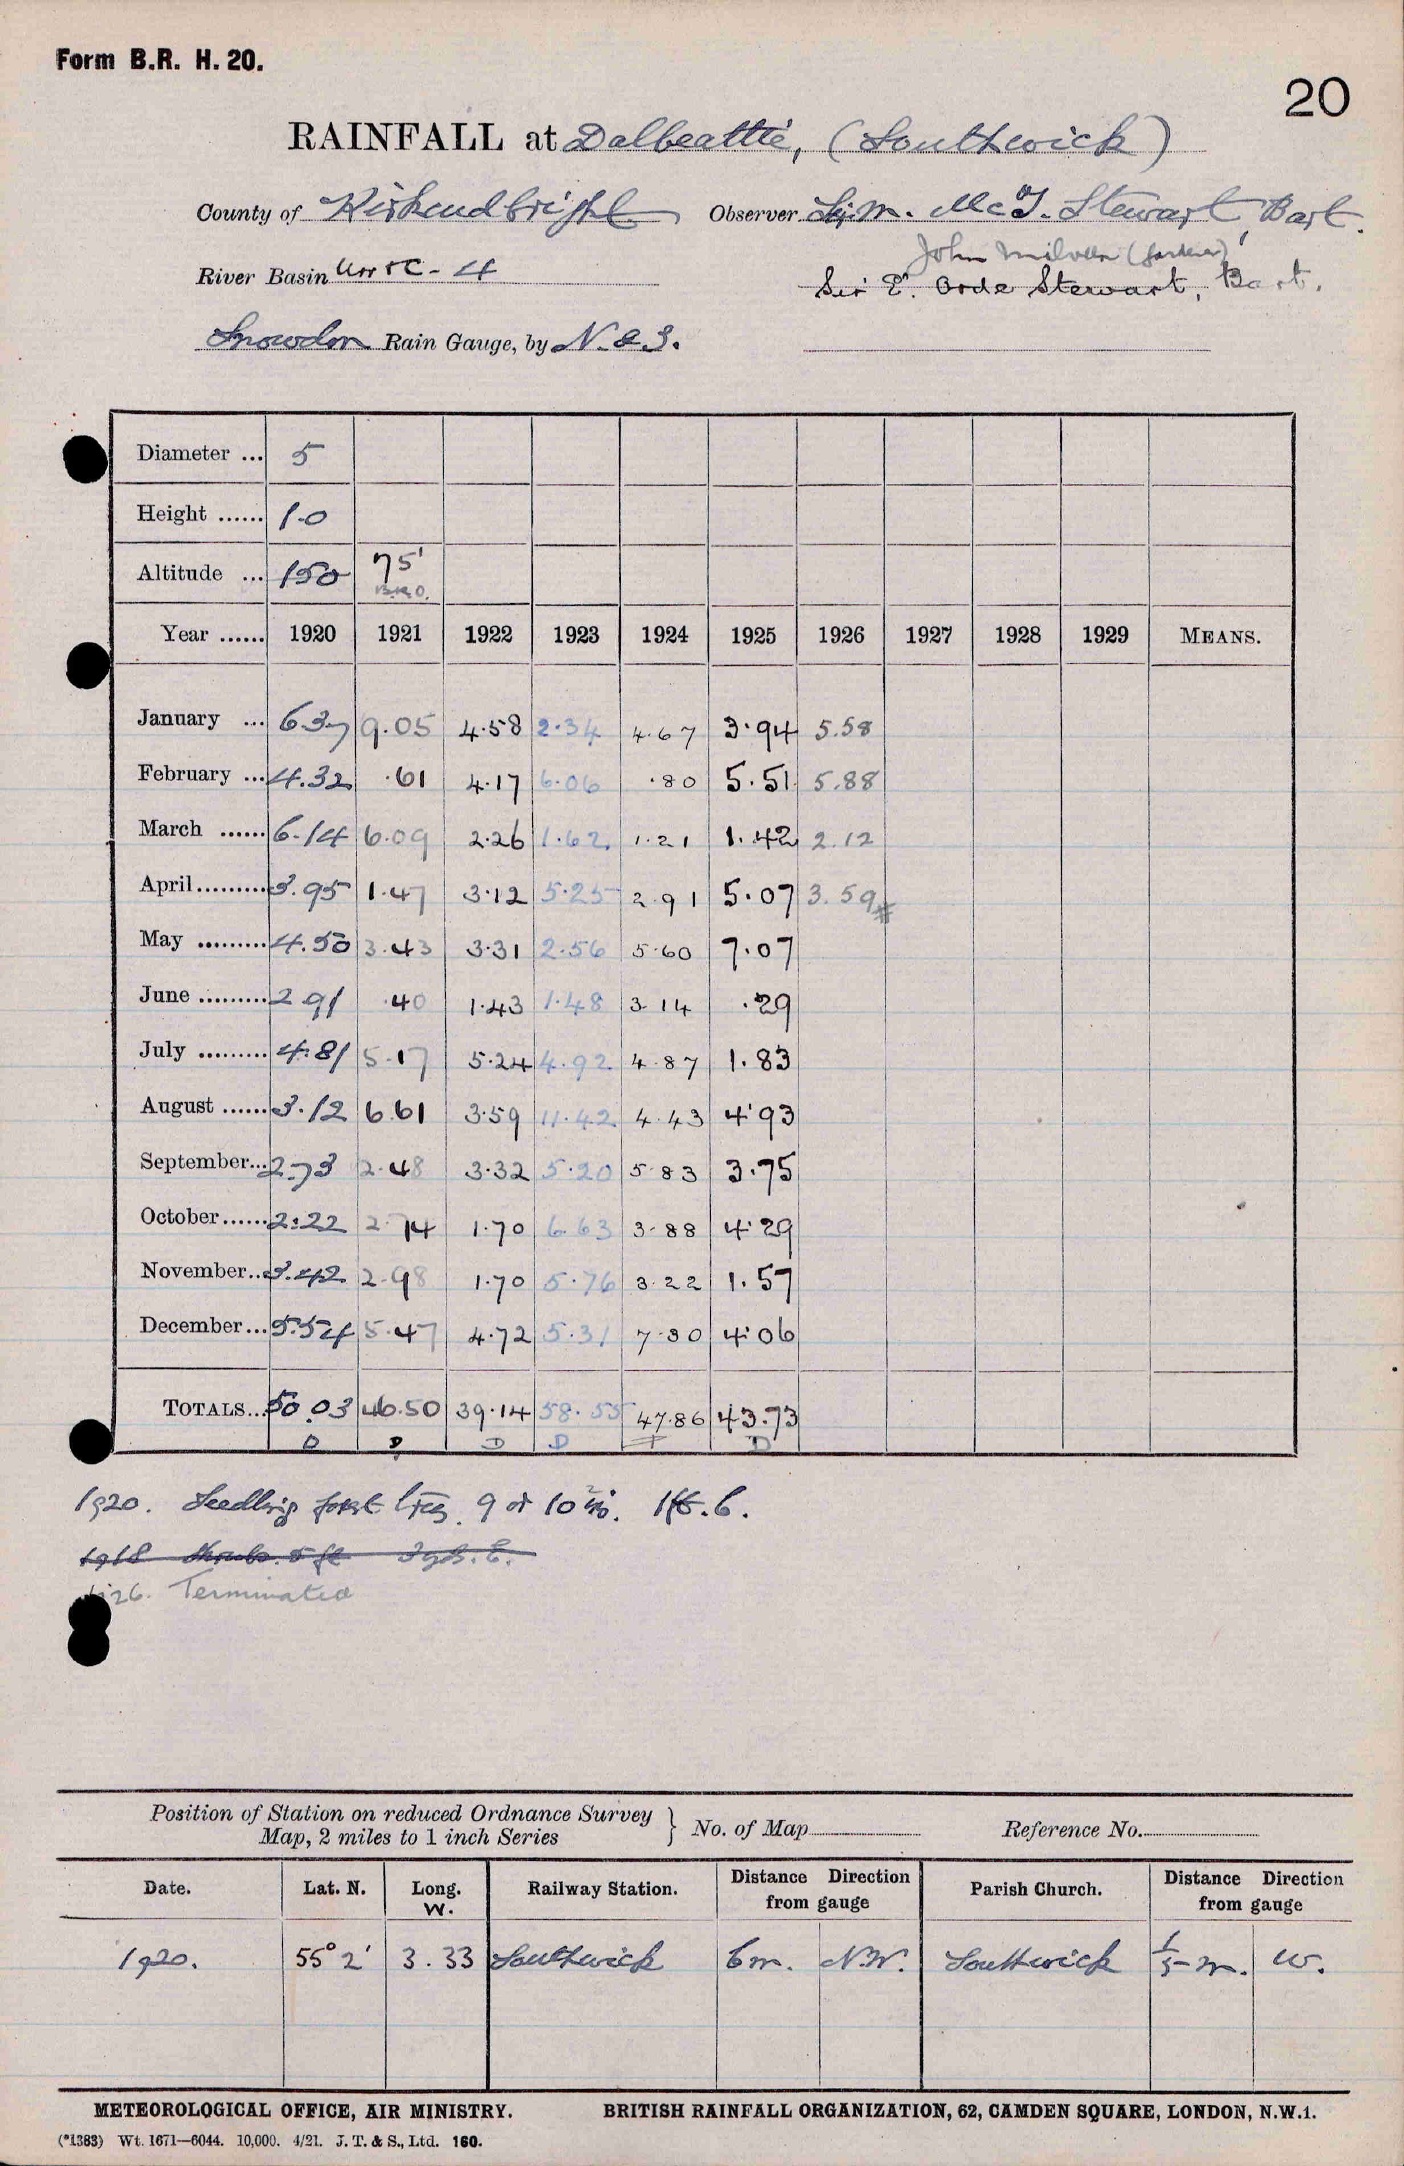 Form B.R. H. 20.
20
RAINFALL at Dalbeattie, (Southwick)
County of Kirkcudbright Observer Sir M. McT. Stewart, Bart.
John Milven (gardener)
River Basin Urr &c - 4 Sir E. Orde Stewart, Bart.
Snowdon Rain Gauge, by N. & Z.
Diameter ... 5
Height ...... 1.0
Altitude ... 150 75'
B.R.O.
Year ...... 1920 1921 1922 1923 1924 1925 1926 1927 1928 1929 MEANS.
January ... 6.37 9.05 4.58 2.34 4.67 3.94 5.58
February ... 4.32 .61 4.17 6.06 .80 5.51 5.88
March ...... 6.14 6.09 2.26 1.62 1.21 1.42 2.12
April......... 3.95 1.47 3.12 5.25 2.91 5.07 3.59#
May ......... 4.50 3.43 3.31 2.56 5.60 7.07
June ......... 2.91 .40 1.43 1.48 3.14 .29
July ......... 4.81 5.17 5.24 4.92 4.87 1.83
August ...... 3.12 6.61 3.59 11.42 4.43 4.93
September... 2.73 2.48 3.32 5.20 5.83 3.75
October...... 2.22 2.74 1.70 6.63 3.88 4.29
November... 3.42 2.98 1.70 5.76 3.22 1.57
December... 5.54 5.47 4.72 5.31 7.30 4.06
TOTALS... 50.03 46.50 39.14 58.55 47.86 43.73
D D D D D
1920. Seedling forest trees 9 or 10 in. 1ft. 6.
1918 Shrubs. 5 ft 3yds. E.
26. Terminated
Position of Station on reduced Ordnance Survey
Map, 2 miles to 1 inch Series } No. of Map Reference No.
Date. Lat. N. Long. W. Railway Station. Distance Direction from gauge Parish Church. Distance Direction from gauge
1920. 55° 2' 3.33 Southwick 6m. N.W. Southwick 1/5 m. W.
METEOROLOGICAL OFFICE, AIR MINISTRY. BRITISH RAINFALL ORGANIZATION, 62, CAMDEN SQUARE, LONDON, N.W.1.
(*1383) Wt. 1671—6044. 10,000. 4/21. J. T. & S., Ltd. 160.